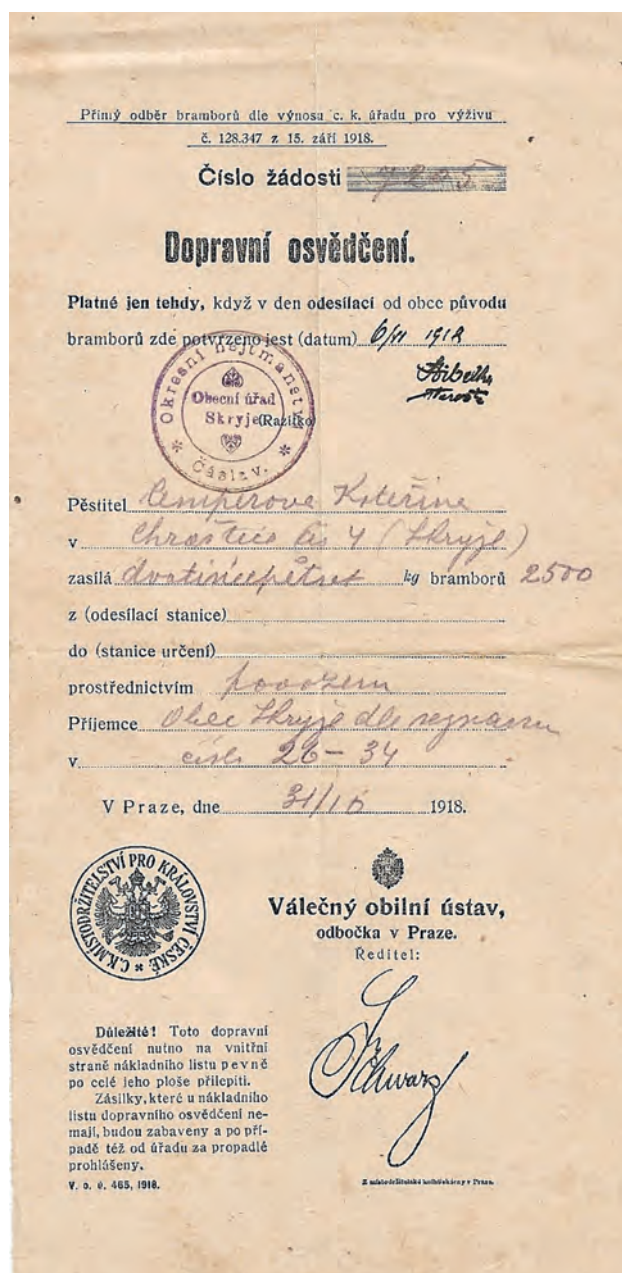 Přímý odběr bramborů dle výnosu c. k. úřadu pro výživu
č. 128.347 z 15. září 1918.
Číslo žádosti 7205
Dopravní osvědčení.
Platné jen tehdy, když v den odesílací od obce původu
bramborů zde potvrzeno jest (datum) 6/11 1918
starosta
Okresní hejtmanství
Obecní úřad
Skryje (Razítko)
Čáslav.
Pěstitel Cempírova
v čís 4 (Skryje)
zasílá kg bramborů 2500
z (odesílací stanice)
do (stanice určení)
prostřednictvím povozem
Příjemce Obec Skryje dle seznamu
v číslo 26-34
V Praze, dne 31/10 1918.
C.K. MÍSTODRŽITELSTVÍ PRO KRÁLOVSTVÍ ČESKÉ
Válečný obilní ústav,
odbočka v Praze.
Ředitel:
Schwarz
Důležité! Toto dopravní
osvědčení nutno na vnitřní
straně nákladního listu pevně
po celé jeho ploše přilepiti.
Zásilky, které u nákladního
listu dopravního osvědčení ne-
mají, budou zabaveny a po pří-
padě též od úřadu za propadlé
prohlášeny.
V. o. ú. 465, 1918.
Z místodržitelské knihtiskárny v Praze.